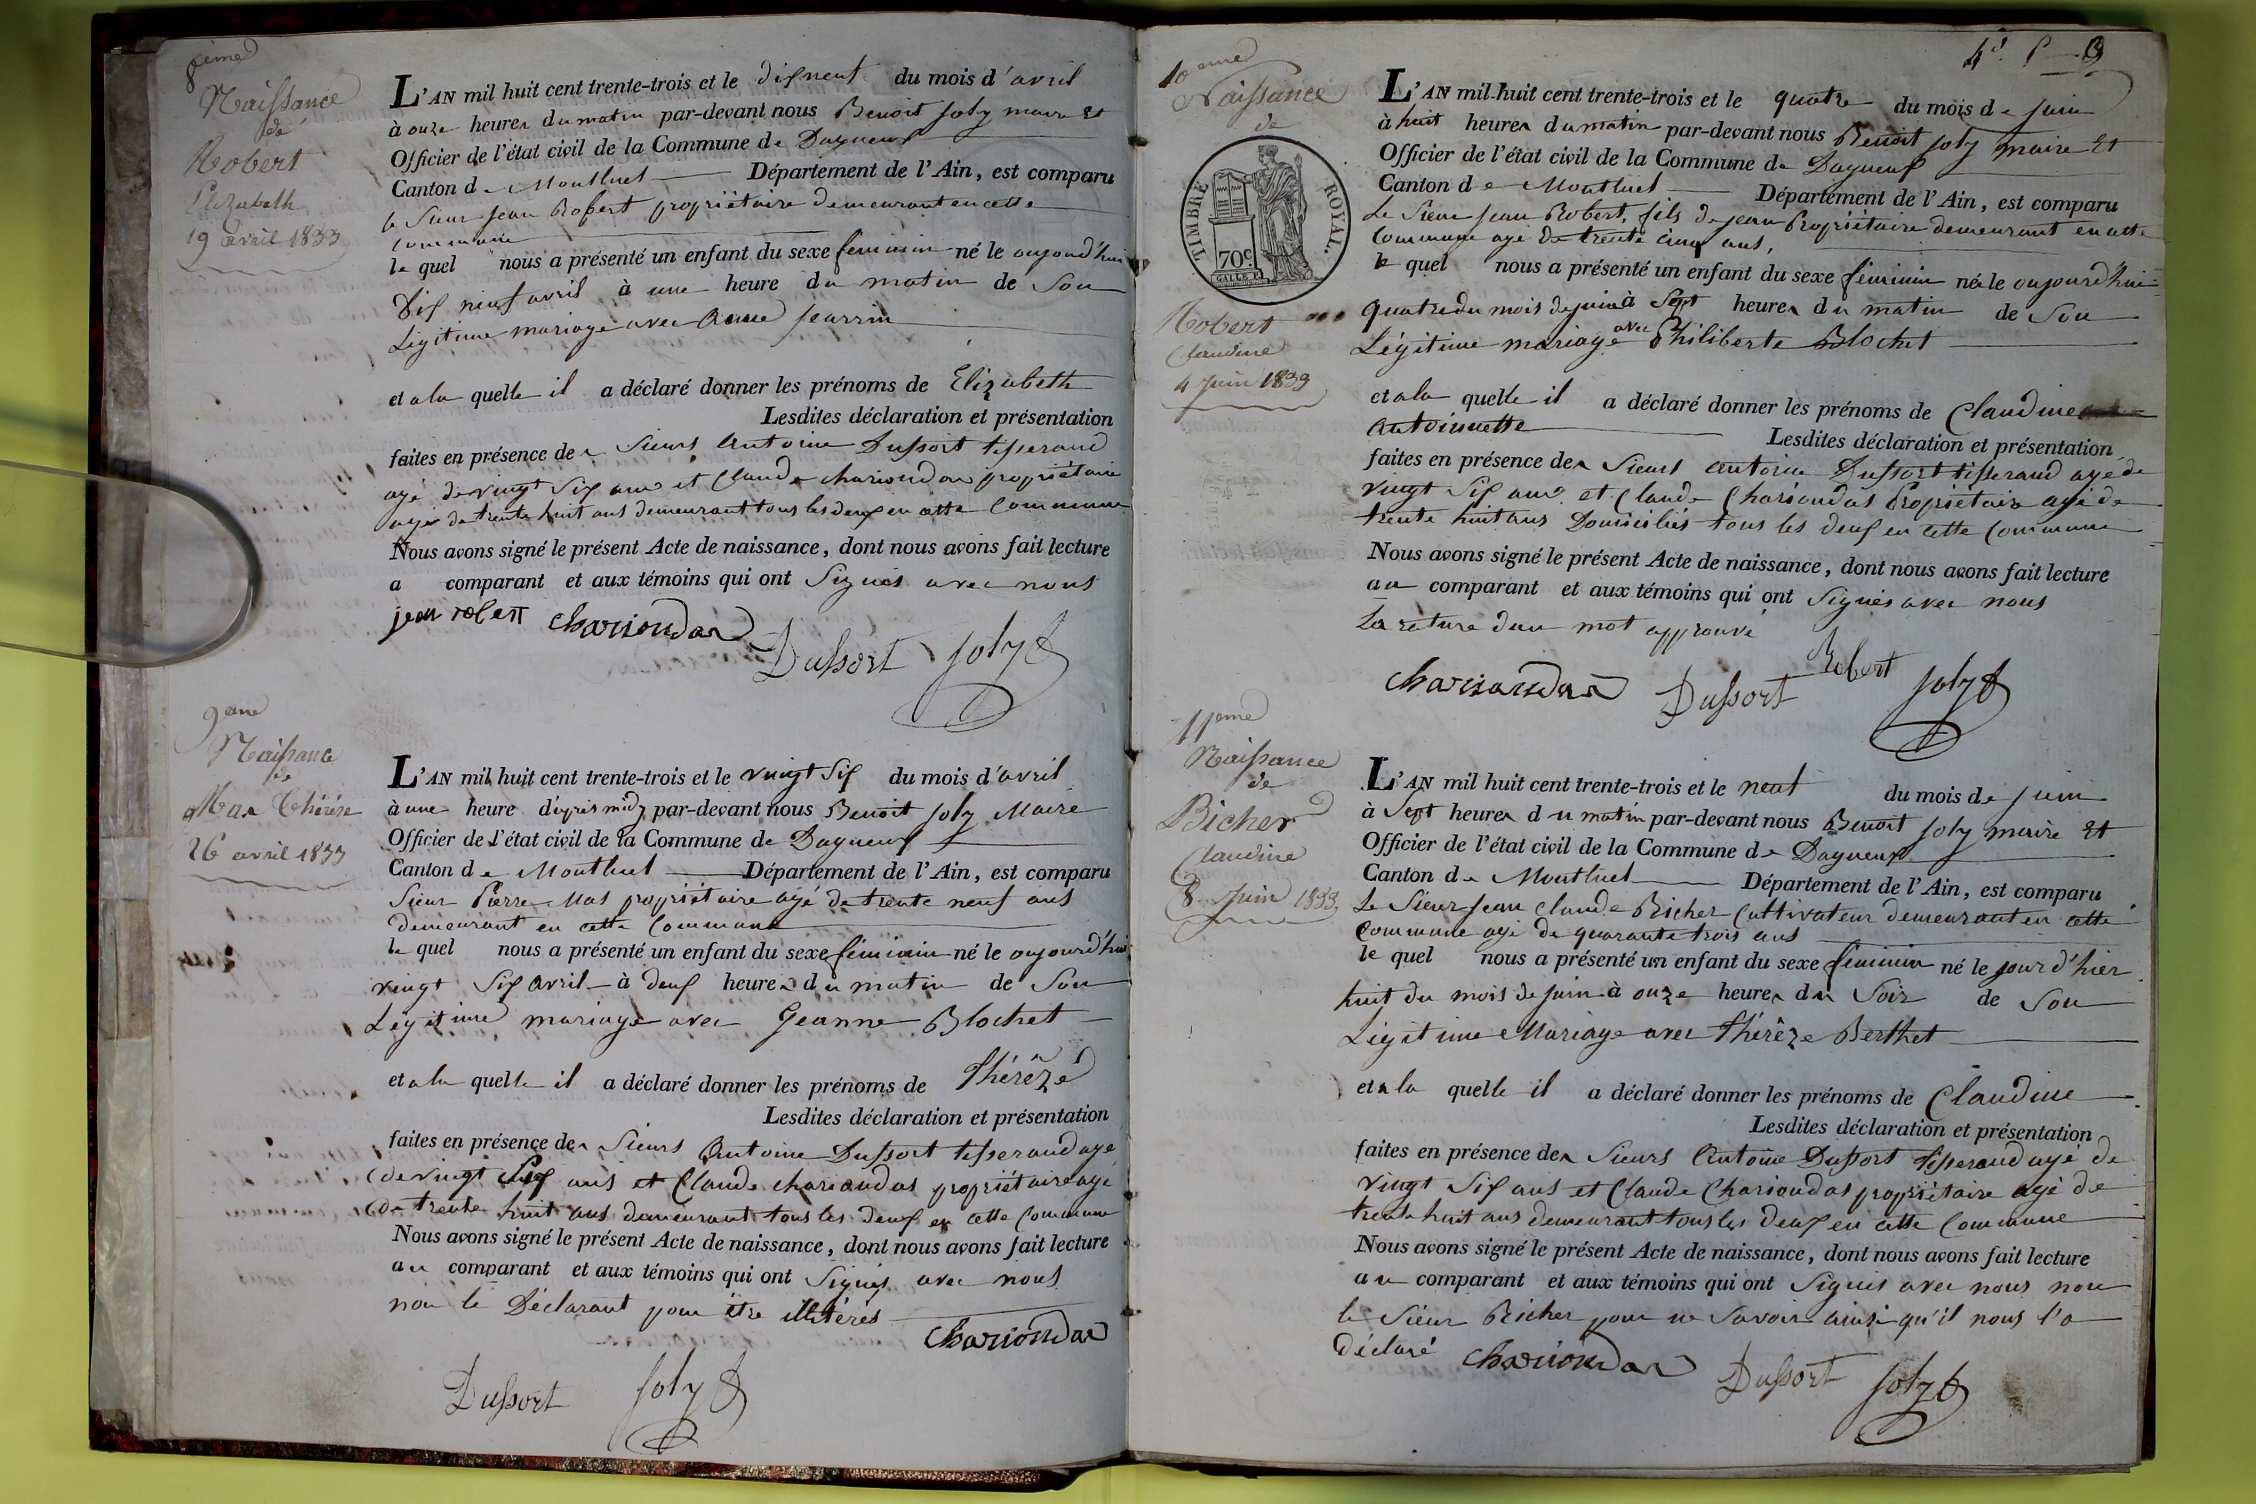 8ème
Naissance
de
Robert
Elizabeth
19 avril 1833
L'AN mil huit cent trente-trois et le dix neuf du mois d'avril
à onze heures du matin par-devant nous Benoit Joly maire Et
Officier de l'état civil de la Commune de Dagneux
Canton de Montluel Département de l'Ain, est comparu
le Sieur Jean Robert propriétaire demeurant en cette
commune
le quel nous a présenté un enfant du sexe féminin né le aujourd'hui
Dix neuf avril à une heure du matin de Son
Légitime mariage avec Anne Jearrin
et a la quelle il a déclaré donner les prénoms de Elizabeth
Lesdites déclaration et présentation
faites en présence des Sieurs Antoine Dussort tisserand
agé de vingt Six ans et Claude charioudas propriétaire
agé de trente huit ans demeurant tous les deux en cette Commune
Nous avons signé le présent Acte de naissance, dont nous avons fait lecture
a comparant et aux témoins qui ont Signés avec nous
jean robert charioudas Dussort Joly
9eme
Naissance
de
Mas Thérèse
26 avril 1833
L'AN mil huit cent trente-trois et le vingt Six du mois d'avril
à une heure d'après midy par-devant nous Benoit Joly Maire
Officier de l'état civil de la Commune de Dagneux
Canton de Montluel Département de l'Ain, est comparu
Sieur Pierre Mas propriétaire agé de trente neuf ans
demeurant en cette Commune
le quel nous a présenté un enfant du sexe féminin né le aujourd'hui
vingt Six avril à deux heures du matin de Son
Légitime mariage avec Geanne Blochet
et a la quelle il a déclaré donner les prénoms de Thérèze
Lesdites déclaration et présentation
faites en présence des Sieurs Antoine Dussort tisserand agé
de vingt Six ans et Claude charioudas propriétaire agé
de trente huit ans demeurant tous les deux en cette Commune
Nous avons signé le présent Acte de naissance, dont nous avons fait lecture
au comparant et aux témoins qui ont Signés avec nous
non le Déclarant pour être illitérés
charioudas
Dussort Joly
10eme
Naissance
de
TIMBRE ROYAL.
70c.
Robert
Claudine
4 Juin 1833
L'AN mil huit cent trente-trois et le quatre du mois de juin
à huit heures du matin par-devant nous Benoit Joly maire Et
Officier de l'état civil de la Commune de Dagneux
Canton de Montluel Département de l'Ain, est comparu
Le Sieur Jean Robert, fils de jean Propriétaire demeurant en cette
Commune agé de trente cinq ans,
le quel nous a présenté un enfant du sexe féminin né le aujourd'hui
quatre du mois de juin à Sept heures du matin de Son
Légitime mariage avec Philiberte Blochet
et a la quelle il a déclaré donner les prénoms de Claudine
Antoinette Lesdites déclaration et présentation
faites en présence des Sieurs Antoine Dussort tisserand agé de
vingt Six ans et Claude Charioudas Propriétaire agé de
trente huit ans Domiciliés tous les deux en cette Commune
Nous avons signé le présent Acte de naissance, dont nous avons fait lecture
au comparant et aux témoins qui ont Signés avec nous
La rature d'un mot approuvé
charioudas Dussort Robert Joly
11eme
Naissance
de
Bicher
Claudine
8 Juin 1833
L'AN mil huit cent trente-trois et le neuf du mois de Juin
à Sept heures du matin par-devant nous Benoit Joly maire Et
Officier de l'état civil de la Commune de Dagneux
Canton de Montluel Département de l'Ain, est comparu
Le Sieur Jean Claude Bicher Cultivateur demeurant en cette
Commune agé de quarante trois ans
le quel nous a présenté un enfant du sexe féminin né le jour d'hier
huit du mois de Juin à onze heures du Soir de Son
Légitime Mariage avec Thérèze Berthet
et a la quelle il a déclaré donner les prénoms de Claudine
Lesdites déclaration et présentation
faites en présence des Sieurs Antoine Dussort tisserand agé de
vingt Six ans et Claude Charioudas propriétaire agé de
trente huit ans demeurant tous les deux en cette Commune
Nous avons signé le présent Acte de naissance, dont nous avons fait lecture
au comparant et aux témoins qui ont Signés avec nous non
le Sieur Bicher pour ne Savoir ainsi qu'il nous l'a
déclaré charioudas Dussort Joly